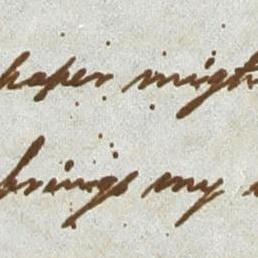 paper might
brings my